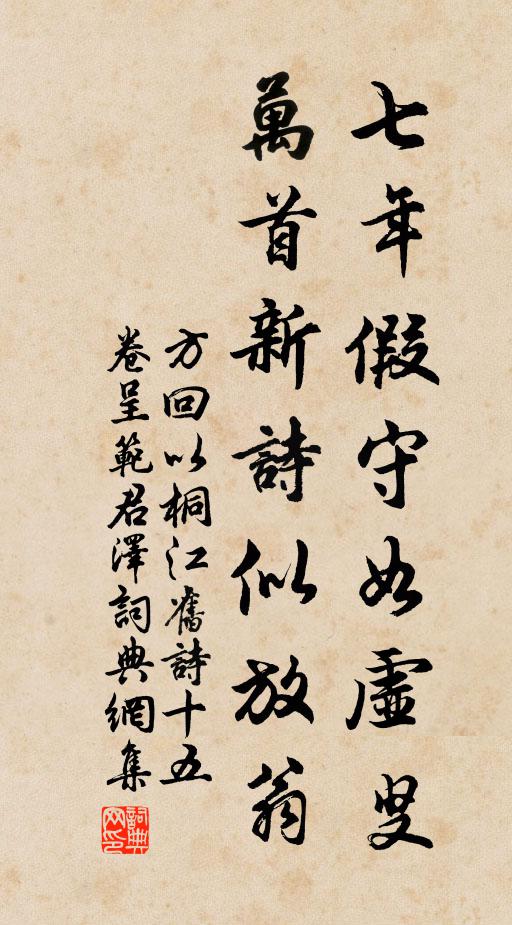 七年假守如虛叟
萬首新詩似放翁
方回以桐江舊詩十五
卷呈範君澤詞典網集
詞典
网印